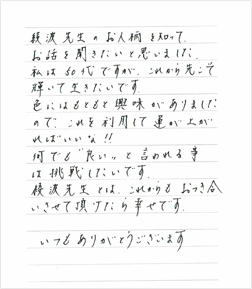 綾波先生のお人柄を知って、
お話を聞きたいと思いました。
私は50代ですが、これから先こそ
輝いて生きたいです。
色にはもともと興味がありました
ので、これを利用して運が上が
ればいいな!!
何でも"良い"と言われる事
は挑戦したいです。
綾波先生とは、これからもおつき合
いさせて頂けたら幸せです。
いつもありがとうございます